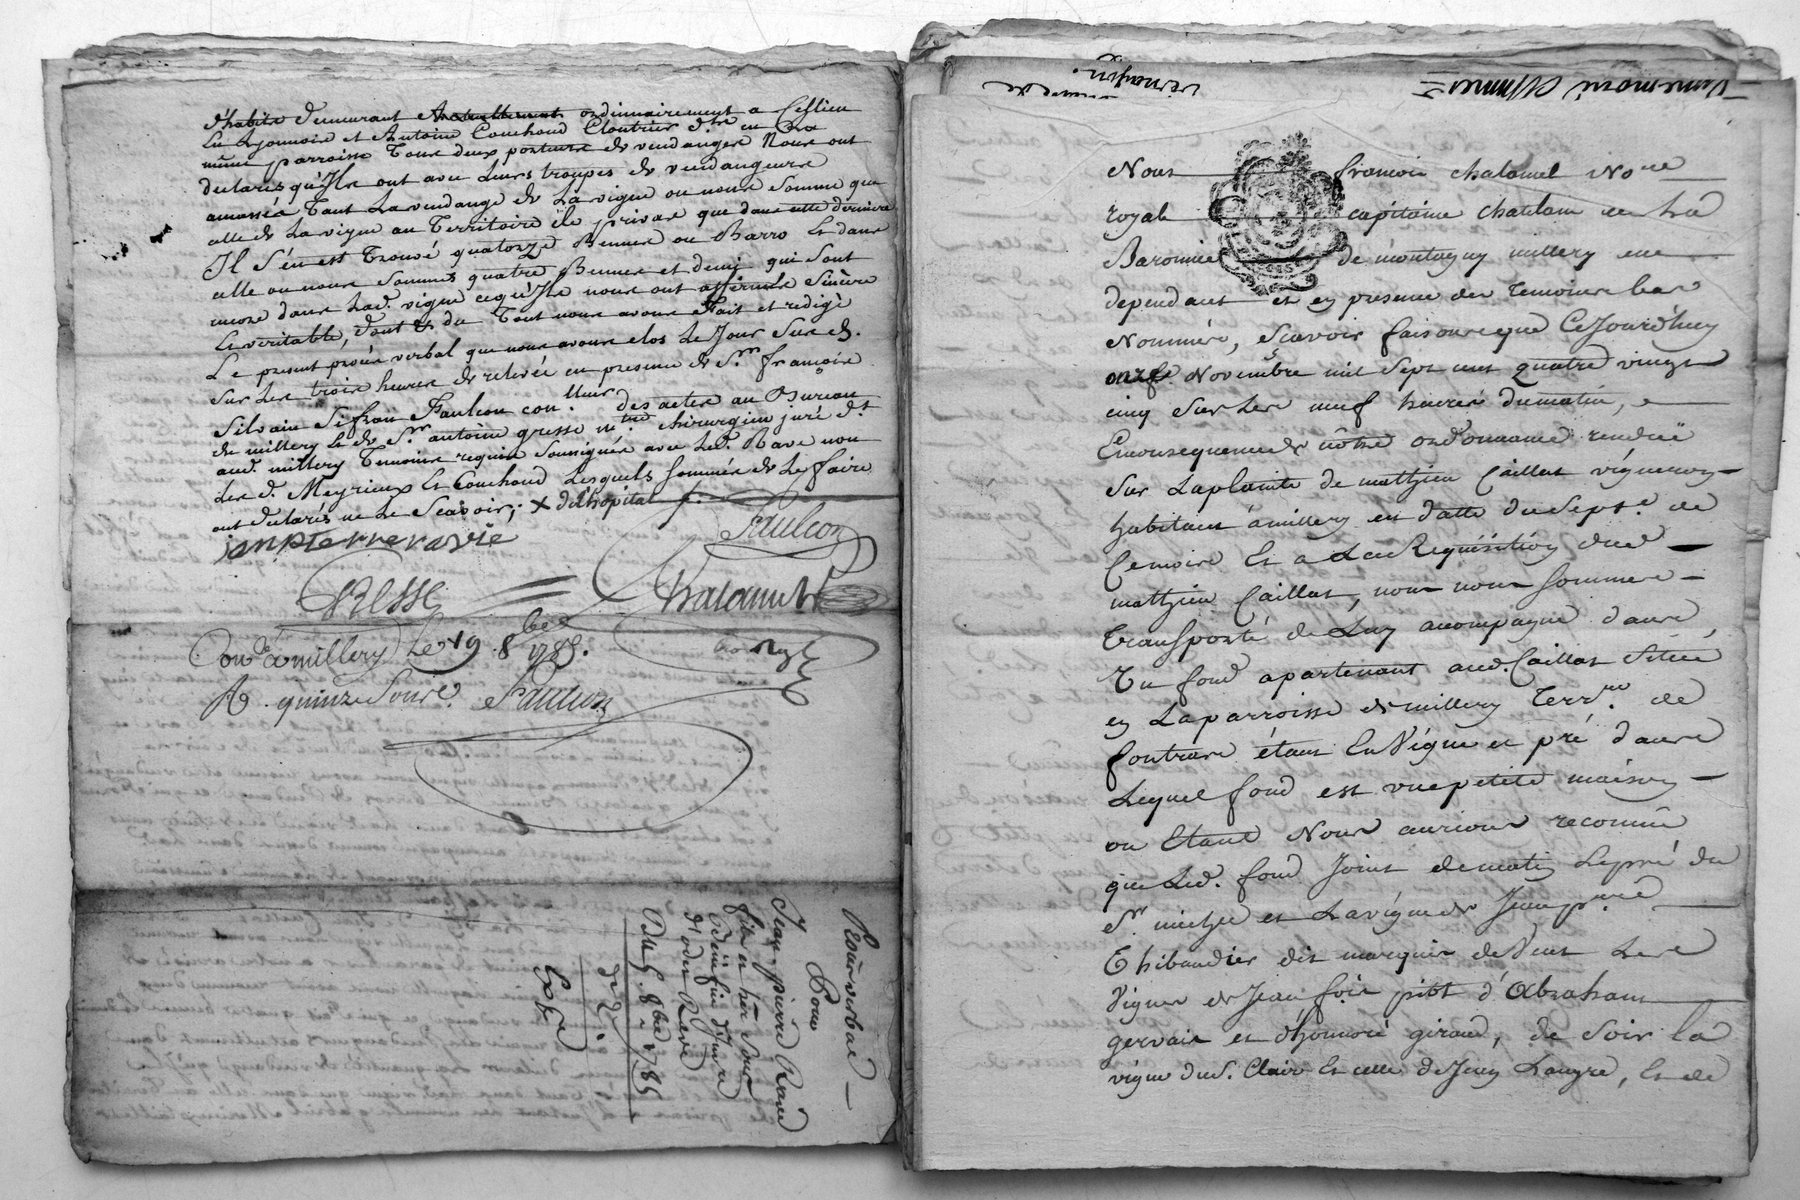 d'habite demeurant actuellement ordinairement a Cellieu
En Lyonnois et Antoine Couchoud Cloutrier d.t en la
même parroisse Tous deux porteurs de vendanges Nous ont
declarés qu'Ils ont avec Leurs troupes de vendangeurs
amassés Tant La vendange de La vigne ou nous somme que
celle de La vigne au Territoire de privas que dans cette derniere
Il s'en est Trouvé quatorze Bennes ou Barro Et dans
celle ou nous sommes quatre Bennes et demy qui sont
encore dans Lad. vigne ce qu'Ils nous ont affermés Sincère
Et veritable, dont & du Tout nous avons Fait et redigé
Le present procès verbal que nous avons clos Le Jour Sus d.
Sur Les trois heures de relevée en presence de S.r françois
Silvain Sifran Faulcon con.lleur des actes au Bureau
de millery Et de S.r antoine gresse m.tre chirurgien juré d.t
aud. millery Temoins requis Soussignés avec Led. Rave non
Les d. Meyrieux Et Couchoud Lesquels Sommés de Le faire
ont declarés ne Le Scavoir; X de l'hopital
janpierre ravie
Faulcon
GRESSE
Chalamel
Con.lé a millery Le 19 8bre 1785.
R. quinze Sous. Faulcon
Procès verbal
Pour
Jean pierre Rave
fils et hér Sous
Benefice d'Inv.re
d'odet Rave
Du 5. 8bre 1785
Exp.é
Nous françois chalamel No.re
royal capitaine chatelain de La
Baronnie de montagny millery en
dependant et en presence des Temoins bas
Nommés, Scavoir faisons que Cejourd'huy
onze Novembre mil Sept cent quatre vingt
cinq Sur Les neuf heures du matin,
En consequence de nôtre ordonnance rendüe
Sur La plainte de mathieu Caillat vigneron
habitant a millery en datte du Sept.e de
Ce mois Et a La Requisition dud.
mathieu Caillat, nous nous Sommes
transporté de Luy accompagné dans
Un fond apartenant aud. Caillat Situé
en La parroisse de millery Terr.re de
fontrare étant En Vigne et pré dans
Lequel fond est une petite maison
ou Etant Nous aurions reconnu
que Led. fond Joint de matin Le pré du
S.r michel et La vigne de Jean p.rre
Thibaudier dit marquis de Vent Les
Vignes de Jean fois pitt d'Abraham
gervais et d'honnoré giraud, de Soir La
vigne du S. Clair Et celle de Jean Laugre, Et de